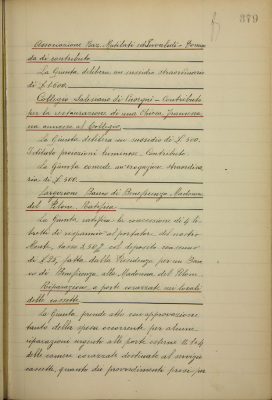 379
Associazione Naz. Mutilati ed Invalidi - Doman
da di contributo
La Giunta delibera un sussidio straordinario
di £ 1.000.
Collegio Salesiano di Cuorgnè - Contributo
per la restaurazione di una Chiesa Francesca
na annessa al Collegio.
La Giunta delibera un sussidio di £ 500.
Istituto proiezioni luminose. Contributo.
La Giunta concede un'erogazione straordina
ria di £ 500.
Largizioni Banco di Beneficenza Madonna
del Pilone. Ratifica.
La Giunta ratifica la concessione di 4 li
bretti di risparmio al portatore del nostro
col deposito
di £ 25, fatta dalla Presidenza per un Ban
co di Beneficenza alla Madonna del Pilone.
Riparazioni a porte corazzate nei locali
delle cassette.
La Giunta prende atto con approvazione
tanto della spesa occorrente per alcune
riparazioni urgenti alle porte esterne
delle camere corazzate destinate al servizio
cassette, quanto dei provvedimenti presi, per